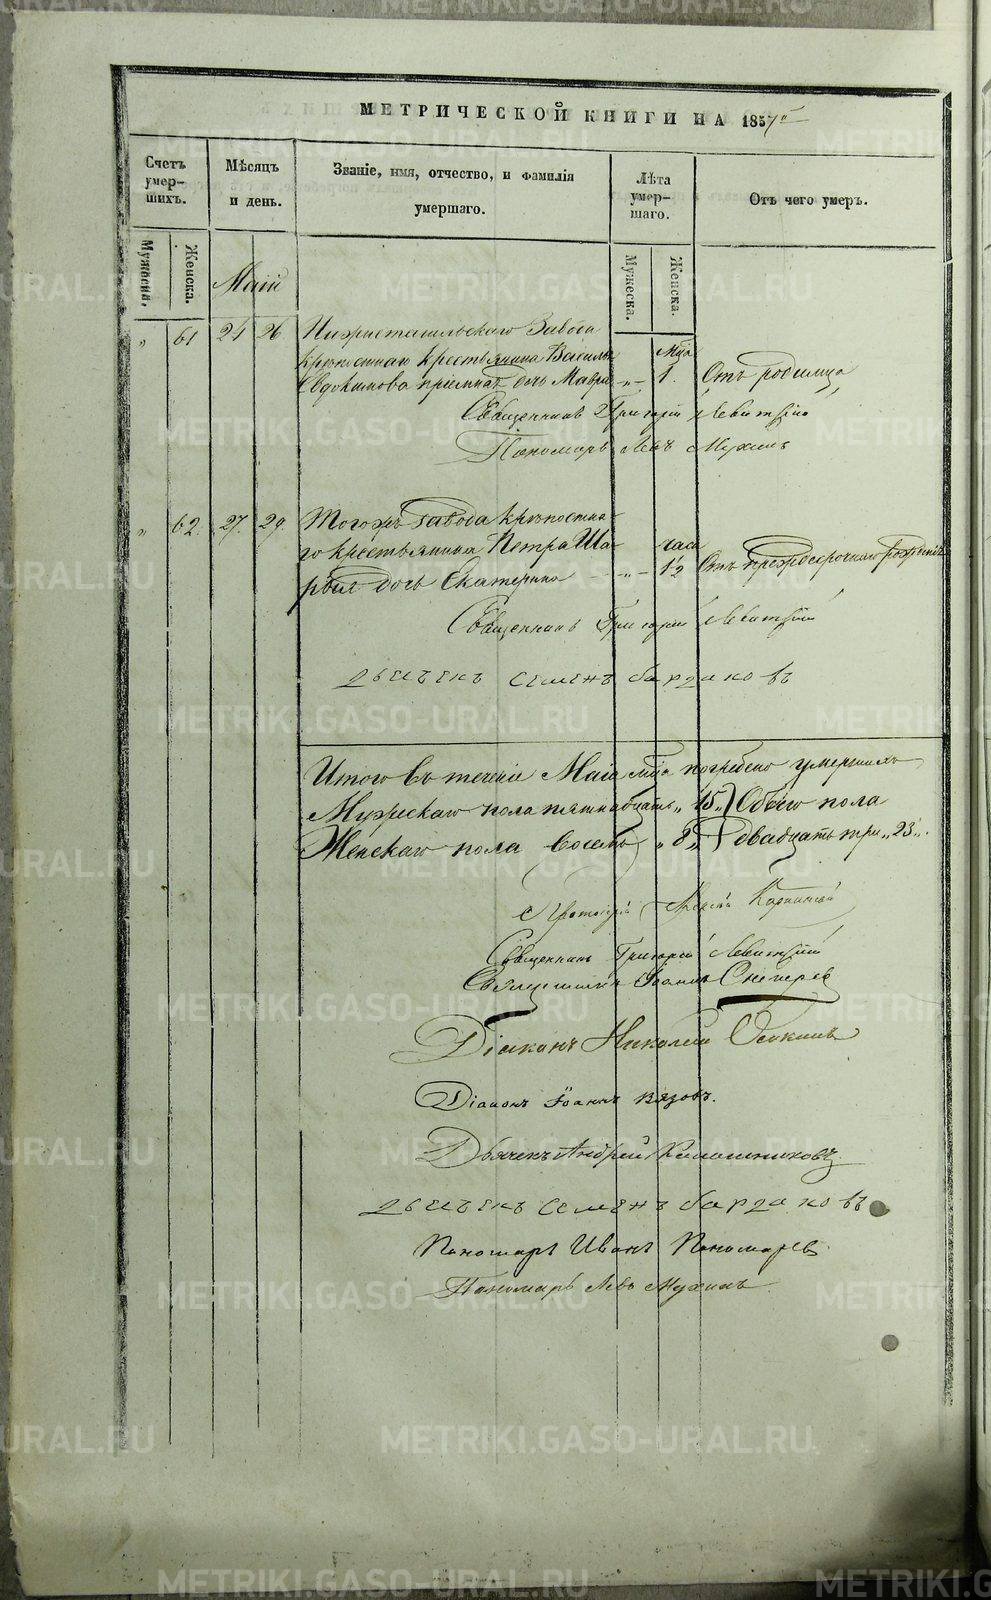 МЕТРИЧЕСКОЙ КНИГИ НА 1857
Счетъ умер-шихъ.
Мѣсяцъ и день.
Званіе, имя, отчество, и фамилія умершаго.
Лѣта умер-шаго.
Отъ чего умеръ.
Мужеска.
Женска.
Маій
Мужеска.
Женска.
„ 61 24 26 Нижнетагильскаго Завода
крѣпостнаго крестьянина Василья мца
Евдокимова пріемная дочь Мавра „ 1. Отъ родимца
Священникъ Григорій Левитскій
Пономарь Левъ Мухинъ
„ 62. 27. 29. Тогожъ завода крѣпостна-
го крестьянина Петра Ша- часа
дочь Екатерина „ 1/2 Отъ преждесрочнаго рожденія
Священникъ Григорій Левитскій
дьячекъ семенъ бардаковъ
Итого въ теченіи Маія мца погребено умершихъ
Мужскаго пола пятнадцать „ 15 „ Обоего пола
Женскаго пола восемь „ 8 „ двадцать три „ 23 „.
Протоіерей Карпинскій
Священникъ Григорій Левитскій
Священникъ Іоаннъ
Діаконъ Николай Осокинъ
Діаконъ Іоаннъ Вязовъ.
Дьячекъ Андрей
дьячекъ семенъ бардаковъ
Пономарь Иванъ Пономаревъ
Пономарь Левъ Мухинъ
METRIKI.GASO-URAL.RU